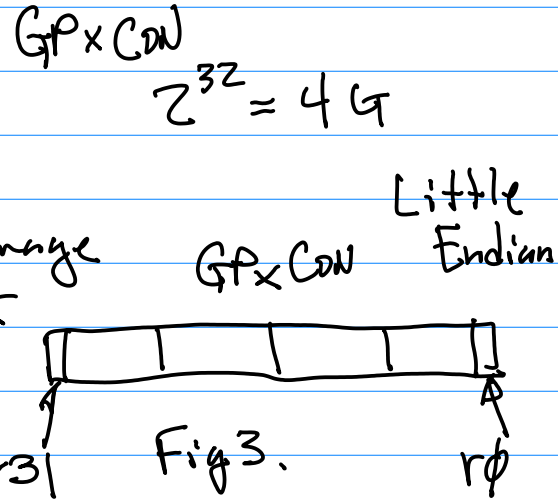 GPxCON
2^32 = 4 G
Little
Endian
GPxCON
Fig 3.
r0